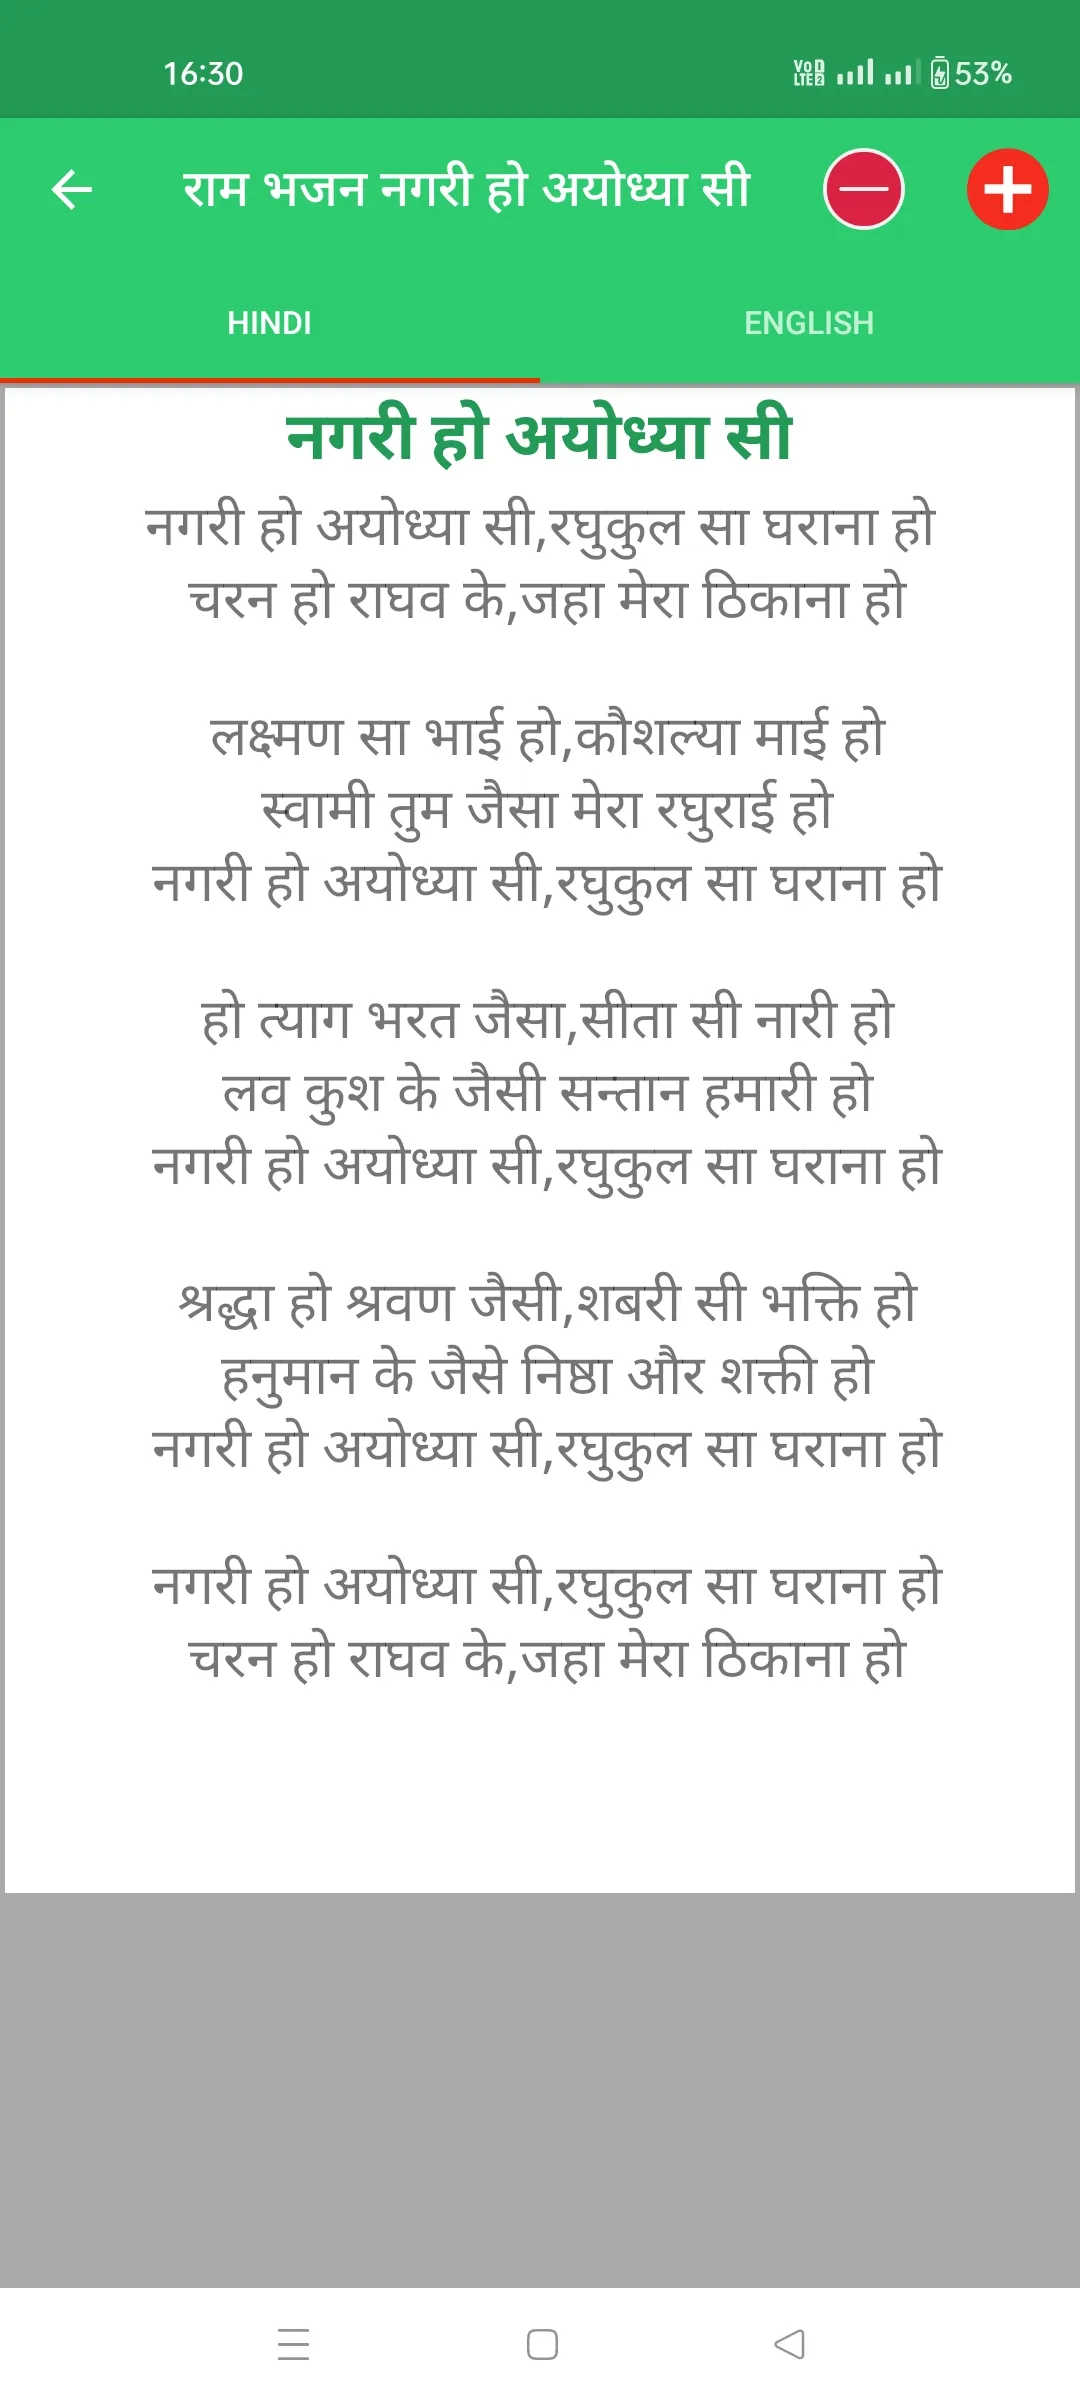 16:30
Vo 1 LTE 2 53%
राम भजन नगरी हो अयोध्या सी
HINDI ENGLISH
नगरी हो अयोध्या सी
नगरी हो अयोध्या सी,रघुकुल सा घराना हो
चरन हो राघव के,जहा मेरा ठिकाना हो
लक्ष्मण सा भाई हो,कौशल्या माई हो
स्वामी तुम जैसा मेरा रघुराई हो
नगरी हो अयोध्या सी,रघुकुल सा घराना हो
हो त्याग भरत जैसा,सीता सी नारी हो
लव कुश के जैसी सन्तान हमारी हो
नगरी हो अयोध्या सी,रघुकुल सा घराना हो
श्रद्धा हो श्रवण जैसी,शबरी सी भक्ति हो
हनुमान के जैसे निष्ठा और शक्ती हो
नगरी हो अयोध्या सी,रघुकुल सा घराना हो
नगरी हो अयोध्या सी,रघुकुल सा घराना हो
चरन हो राघव के,जहा मेरा ठिकाना हो